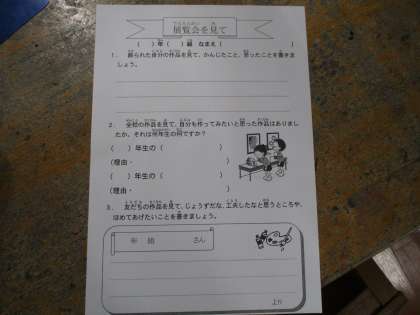 展覧会を見て
（　）年（　）組　なまえ（　　　　　　）
１．飾られた自分の作品を見て、かんじたこと、思ったことを書きま
しょう。
２．全校の作品を見て、自分も作ってみたいと思った作品はありまし
たか。それは何年生の何ですか？
（　）年生の（　　　　　　　）
（理由・
（　）年生の（　　　　　　　）
（理由・
３．友だちの作品を見て、じょうずだな、工夫したなと思うところや、
ほめてあげたいことを書きましょう。
年　組　　　　さん
より